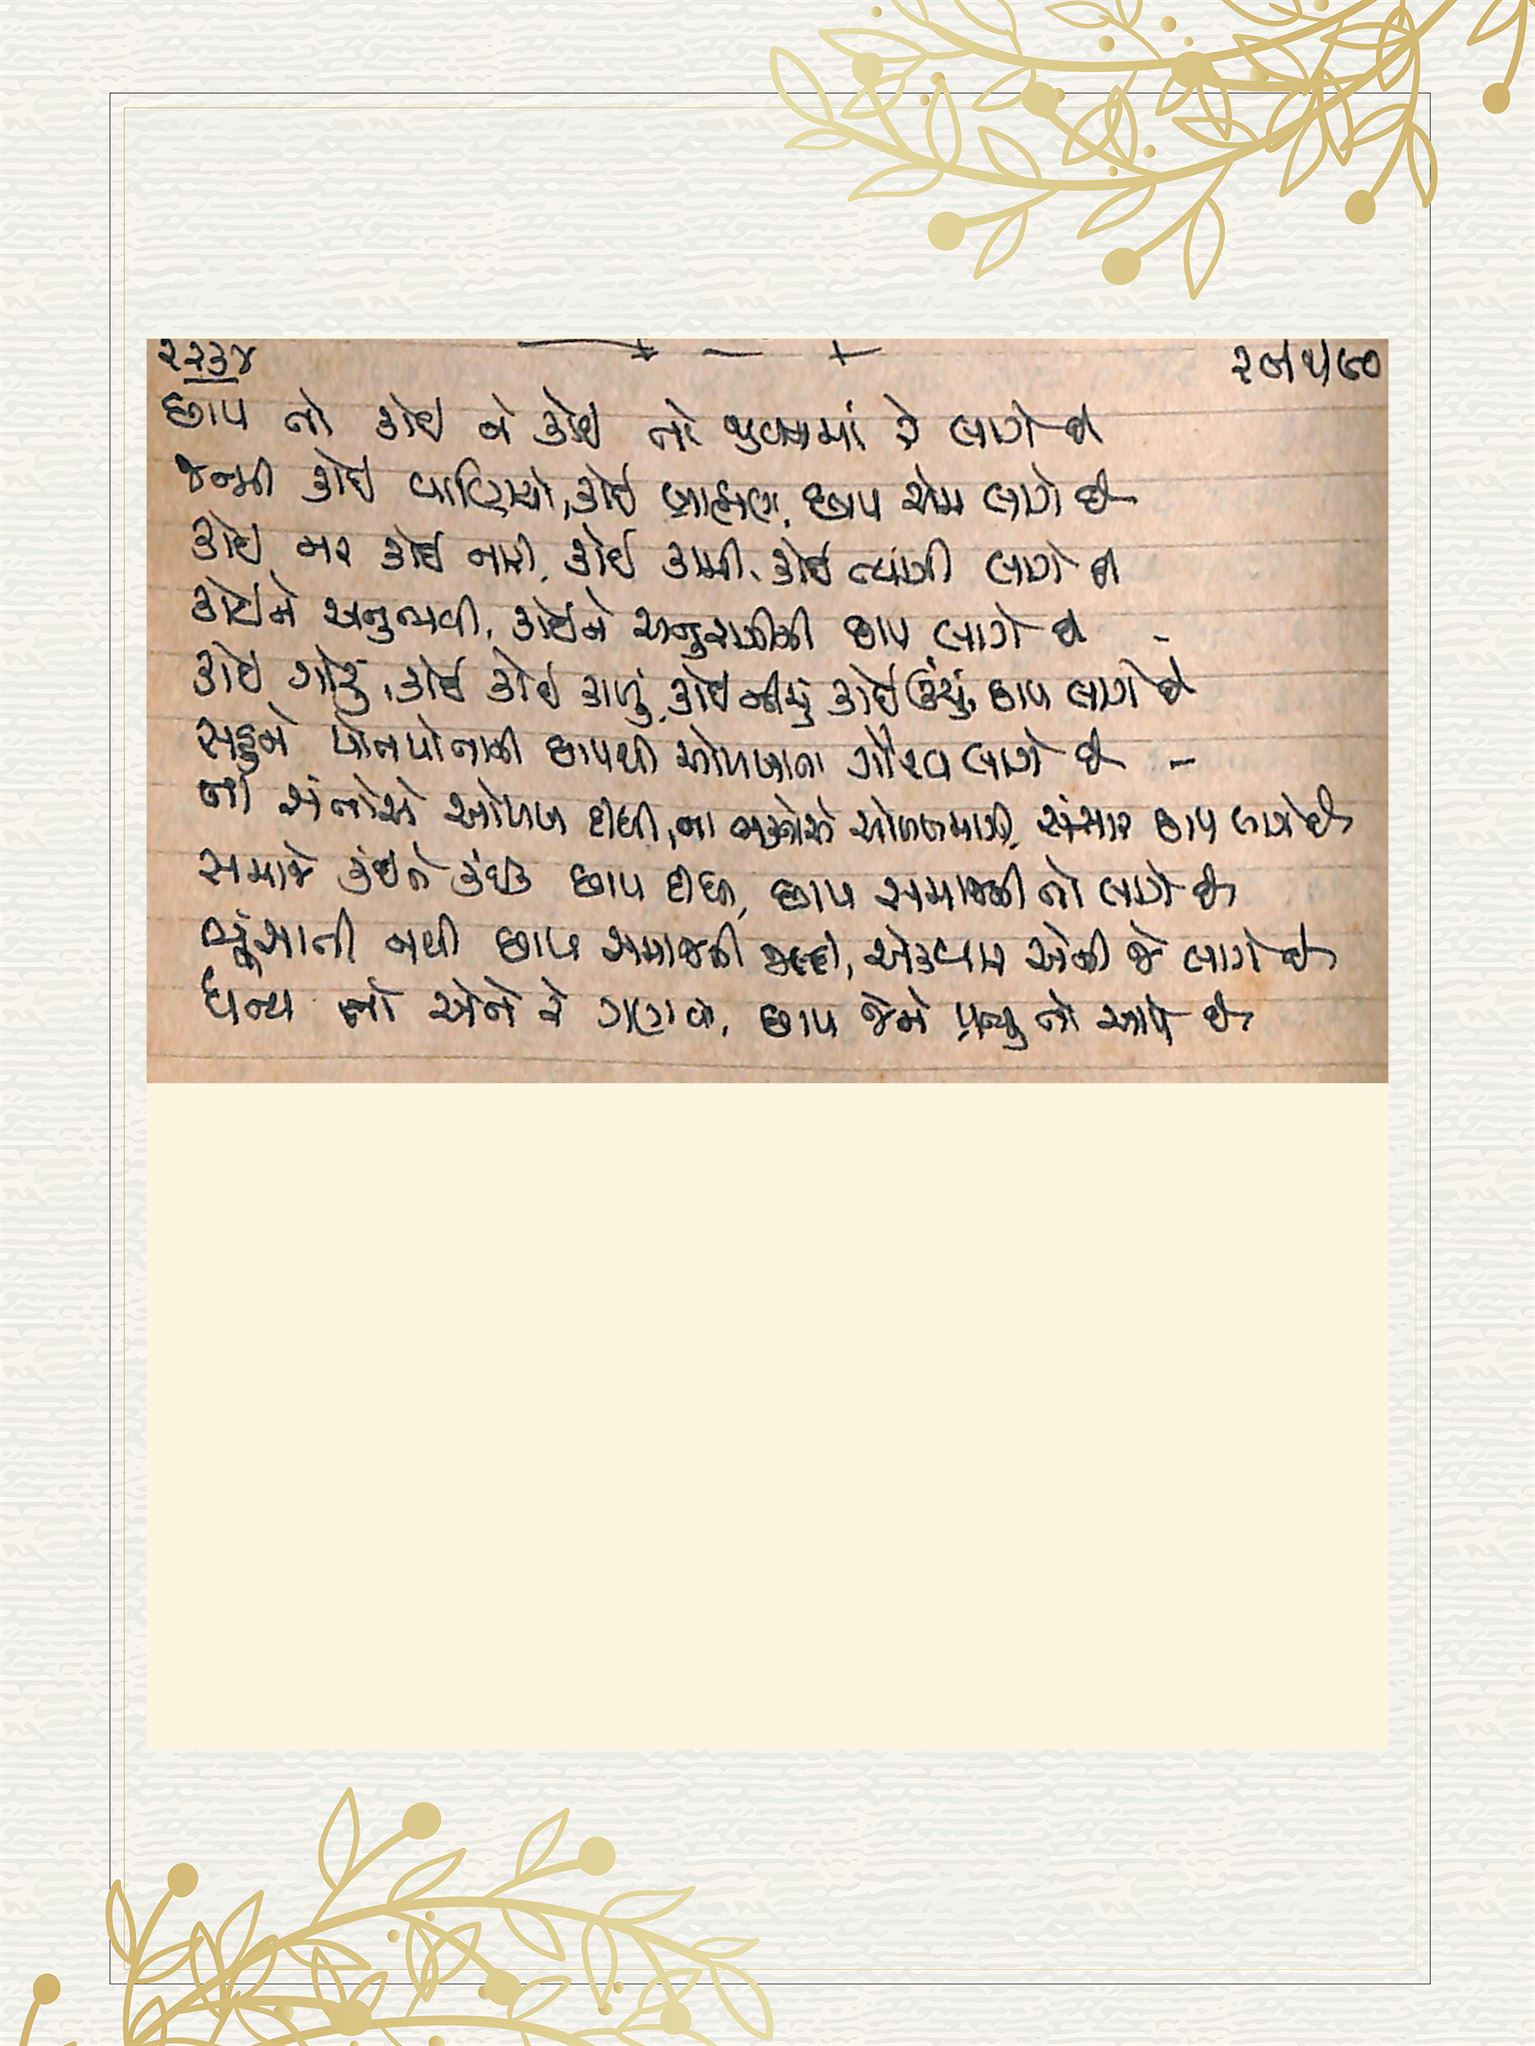 ૨૨૩૪ ૨૯/૧/૯૦
છાપ તો કોઈ ને કોઈ તો જીવનમાં રે લાગે છે
જન્મી કોઈ વાણિયો, કોઈ બ્રાહ્મણ, છાપ એમ લાગે છે
કોઈ નર કોઈ નારી, કોઈ કામી, કોઈ ત્યાગી લાગે છે
કોઈને અનુભવી, કોઈને છાપ લાગે છે -
કોઈ ગોરું, કોઈ કોઈ કાળું, કોઈ નીચું કોઈ ઊંચું, છાપ લાગે છે
સહુને પોતપોતાની છાપથી ઓળખાતા ગૌરવ લાગે છે -
ના સંતોએ ઓળખ દીધી, ના ભક્તોએ ઓળખ માગી, સંસાર છાપ લાગે છે
સમાજે કંઈને કંઈક છાપ દીધી, છાપ સમાજની તો લાગે છે
ભૂંસાતી નથી છાપ સમાજની જલ્દી, એકવાર એની જે લાગે છે
ધન્ય તો એને રે ગણવો, છાપ જેને પ્રભુ તો આપે છે